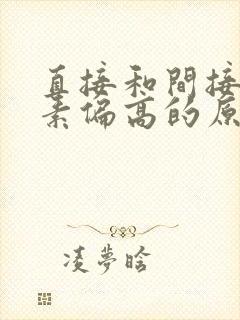 直接和間接
素偏高的原
凌夢晗